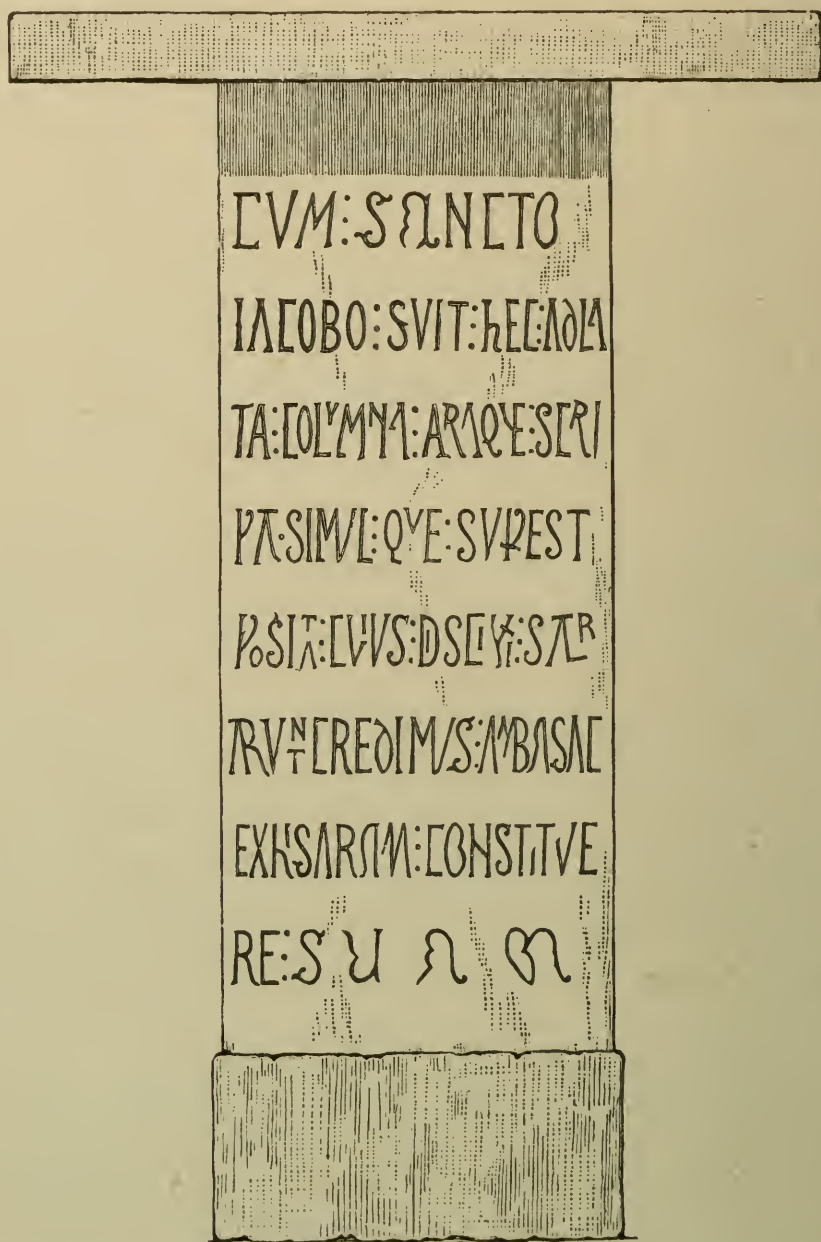 CVM:SANCTO
IACOBO:SVIT:hEC:ADLA
TA:COLVMNA:ARAQVE:SCRI
PTA·SIMVL:QVE:SVPEST
POSITA:CVIVS:DISCIPLI:SACR
ARVNT CREDIMVS:AMBASAC
EXhISARAM:CONSTITVE
RE:SUAM